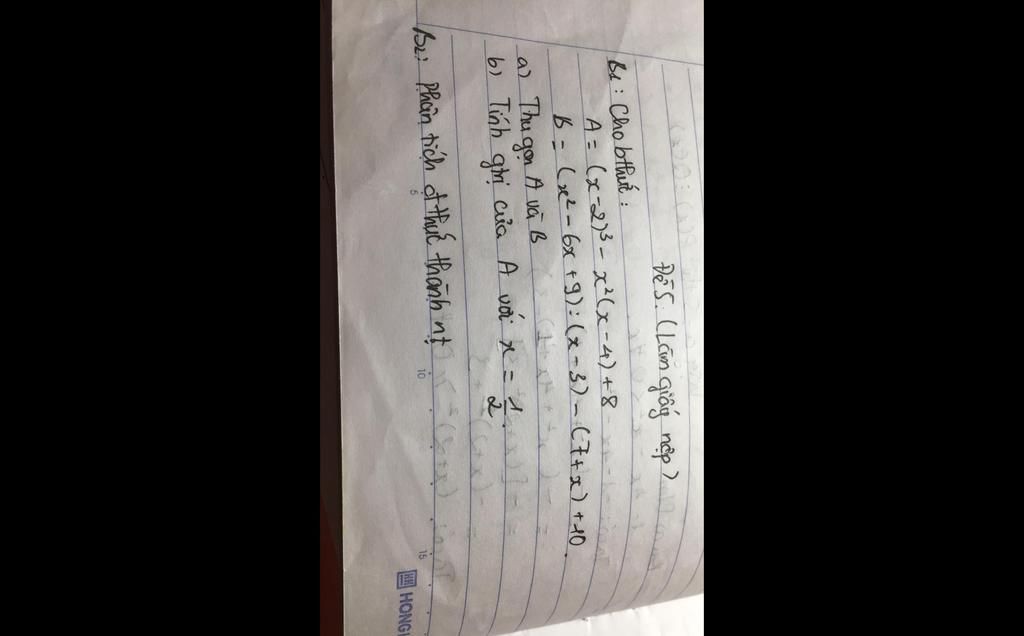 Đề 5. (Làm giấy nộp)
B1: Cho bthức:
A = (x-2)³ - x²(x-4) + 8
B = (x² - 6x + 9) : (x - 3) - (7 + x) + 10.
a) Thu gọn A và B
b) Tính gtrị của A với x = 1/2.
B2: Phân tích đthức thành nt
5 10 15
HONG